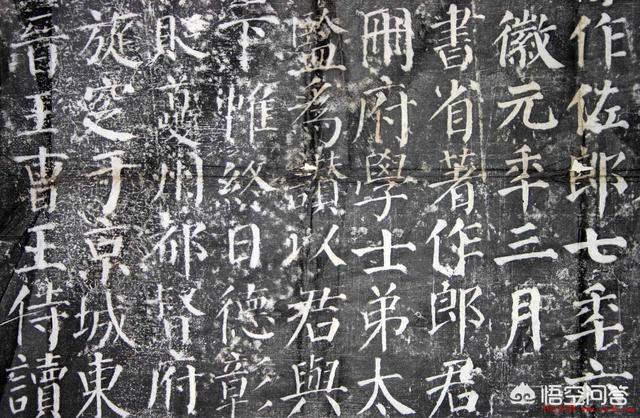 作佐郎七年六
徽元年三月
書省著作郎君
冊府學士弟太
監為讚以君與
下帷終日德彰
貶夔州都督府
旋窆于京城東
晉王曹王侍讀
悟空问答